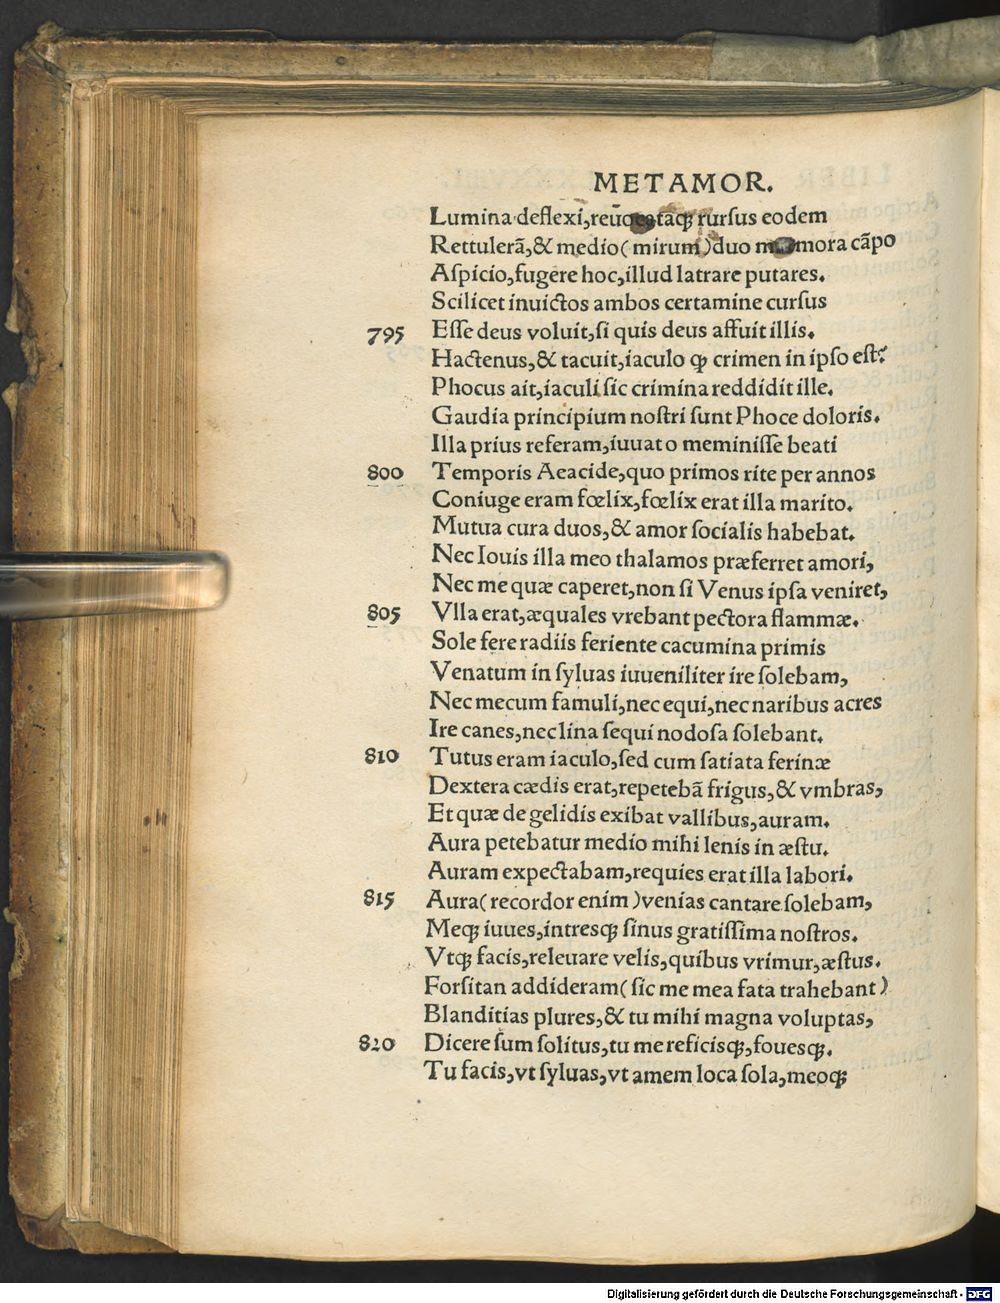 METAMOR.
Lumina deflexi,reuocataqꝫ rurſus eodem
Rettulerã,& medio( mirum )duo marmora cãpo
Aſpicio,fugere hoc,illud latrare putares.
Scilicet inuictos ambos certamine curſus
795 Eſſe deus voluit,ſi quis deus affuit illis.
Hactenus,& tacuit,iaculo qȝ crimen in ipſo eſt?
Phocus ait,iaculi ſic crimina reddidit ille.
Gaudia principium noſtri ſunt Phoce doloris.
Illa prius referam,iuuat o meminiſſe beati
800 Temporis Aeacide,quo primos rite per annos
Coniuge eram fœlix,fœlix erat illa marito.
Mutua cura duos,& amor ſocialis habebat.
Nec Iouis illa meo thalamos præferret amori,
Nec me quæ caperet,non ſi Venus ipſa veniret,
805 Vlla erat,æquales vrebant pectora flammæ.
Sole fere radiis feriente cacumina primis
Venatum in ſyluas iuueniliter ire ſolebam,
Nec mecum famuli,nec equi,nec naribus acres
Ire canes,nec lina ſequi nodoſa ſolebant.
810 Tutus eram iaculo,ſed cum ſatiata ferinæ
Dextera cædis erat,repetebã frigus,& vmbras,
Et quæ de gelidis exibat vallibus,auram.
Aura petebatur medio mihi lenis in æſtu.
Auram expectabam,requies erat illa labori.
815 Aura( recordor enim )venias cantare ſolebam,
Meqꝫ iuues,intresqꝫ ſinus gratiſſima noſtros.
Vtqꝫ facis,releuare velis,quibus vrimur,æſtus.
Forſitan addideram( ſic me mea fata trahebant )
Blanditias plures,& tu mihi magna voluptas,
820 Dicere ſum ſolitus,tu me reficisqꝫ,fouesqꝫ.
Tu facis,vt ſyluas,vt amem loca ſola,meoqꝫ
Digitalisierung gefördert durch die Deutsche Forschungsgemeinschaft - DFG